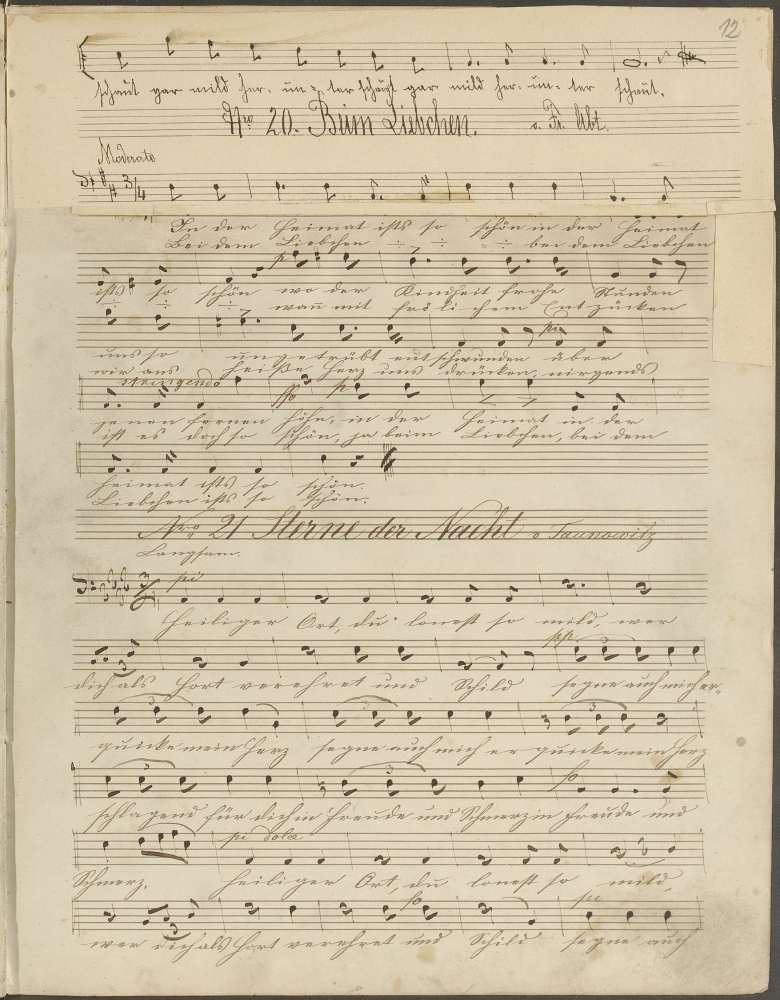 12
schaut gar mild her- un- ter schaut gar mild her- un- ter schaut.
Nro 20. Beim Liebchen. v. Fr. Abt.
Moderato
In der Heimat ists so schön in der Heimat
Bei dem Liebchen ÷ ÷ ÷ bei dem Liebchen
p
ists so schön wo der Kindheit frohe Stunden
÷ ÷ ÷ wañ mit fröli chem Entzücken
uns so ungetrübt entschwunden über
wir ans heiße Herz uns drücken, nirgends
stringendo p
jenen fernen Höhn, in der Heimat in der
ist es doch so schön, ja beim Liebchen, bei dem
Heimat ists so schön.
Liebchen ists so schön.
Nro 21 Sterne der Nacht v Taunowitz
Langsam.
Heiliger Ort, du lonest so mild, wer
pp
dich als Hort verehret und Schild segne auch mich er-
quicke mein Herz segne auch mich er quicke mein Herz
schlagend für dich in Freude und Schmerz in Freude und
dolce
Schmerz. Heiliger Ort, du lonest so mild,
wer dich als Hort verehret und Schild segne auch